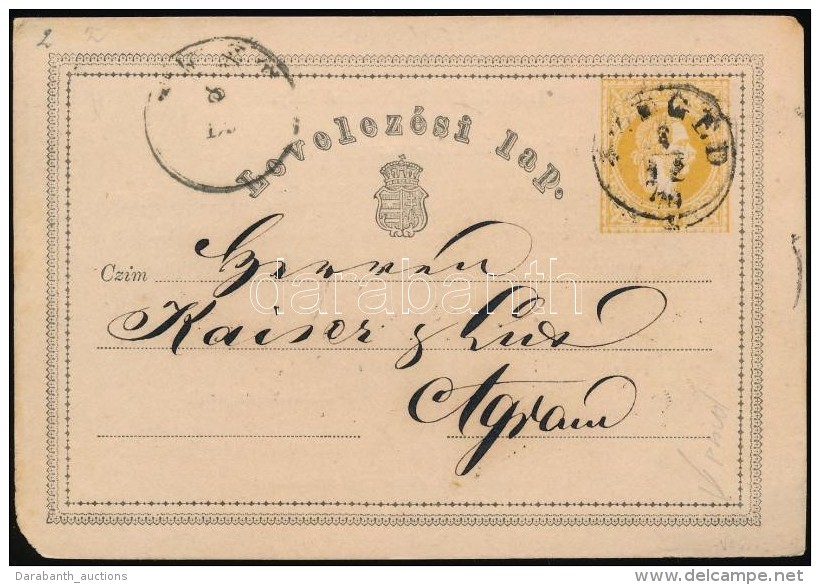 2 2
Levelezési lap.
SZEGED
Czim Herren
Kaiser & Lus
Agram
darabanth
Darabanth_auctions
www.delcampe.net